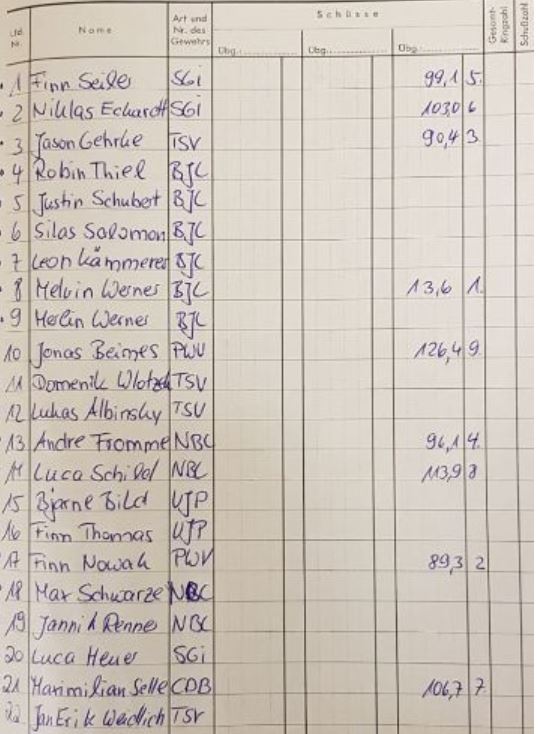 Lfd. Nr. Name Art und Nr. des Gewehrs Schüsse Gesamt-Ringzahl Schußzahl
Übg. Übg. Übg.
1 Finn Seiler SGi 99,1 5.
2 Niklas Eckardt SGi 103,0 6
3 Jason Gehrke TSV 90,4 3.
4 Robin Thiel BJC
5 Justin Schubert BJC
6 Silas Salomon BJC
7 Leon Kämmerer BJC
8 Melvin Werner BJC 13,6 1.
9 Merlin Werner BJC
10 Jonas Beimes PWV 126,4 9.
11 Domenik TSV
12 Lukas Albinsky TSV
13 Andre Fromme NBC 96,1 4.
Luca Schild NBC 113,9 8
15 Bjarne Bild UJP
16 Finn Thomas UJP
17 Finn Nowak PWV 89,3 2
18 Max Schwarze NBC
19 Jannik Renne NBC
20 Luca Heuer SGi
21 Maximilian Selle CDB 106,7 7
22 Jan Erik Weidlich TSV